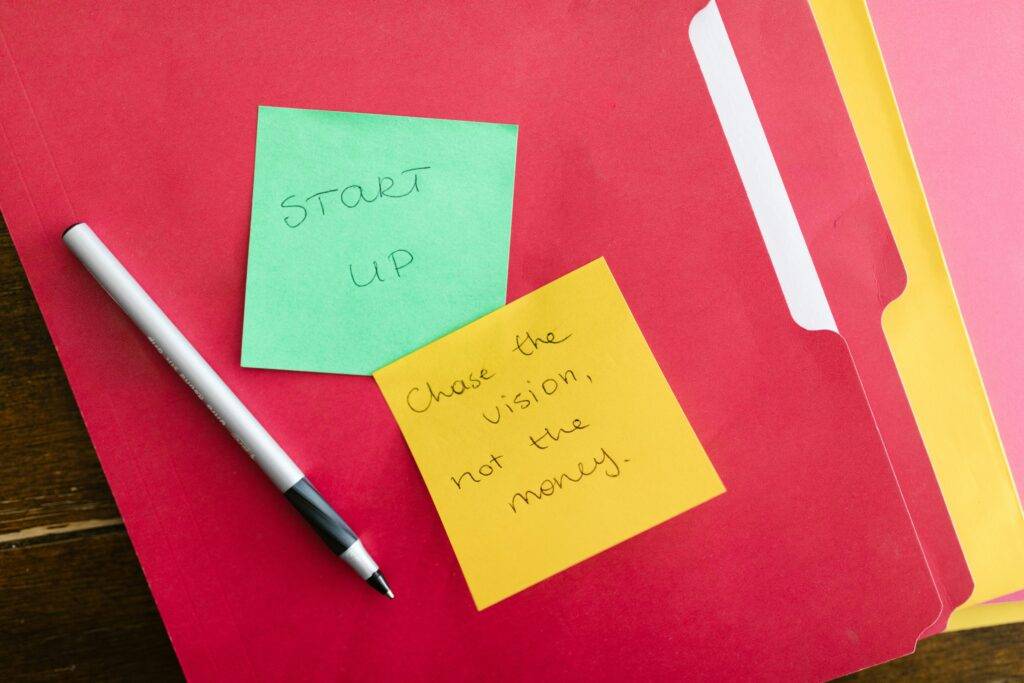 START
UP
Chase the
vision,
not the
money.